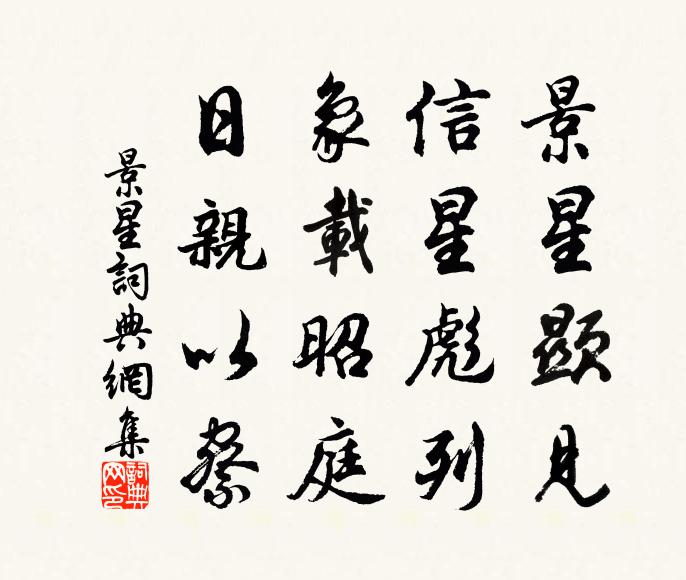 景星顯見
信星彪列
象載昭庭
日親以察
景星詞典網集
詞典網印